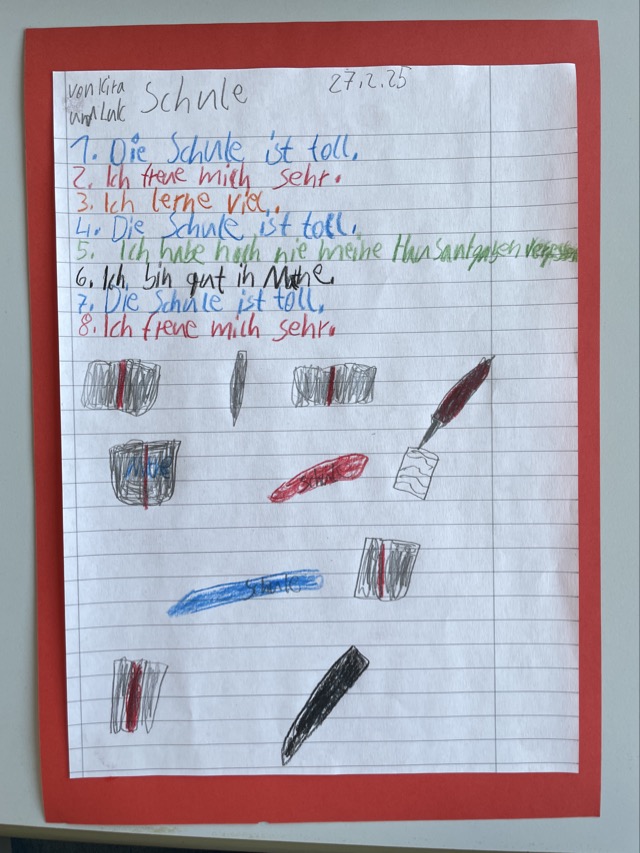 von Kira
und Luk
Schule
27.2.25
1. Die Schule ist toll.
2. Ich freue mich sehr.
3. Ich lerne viel.
4. Die Schule ist toll.
5. Ich habe noch nie meine Hausaufgaben vergessen
6. Ich bin gut in Mathe.
7. Die Schule ist toll.
8. Ich freue mich sehr.
Mathe
Schule
Schule